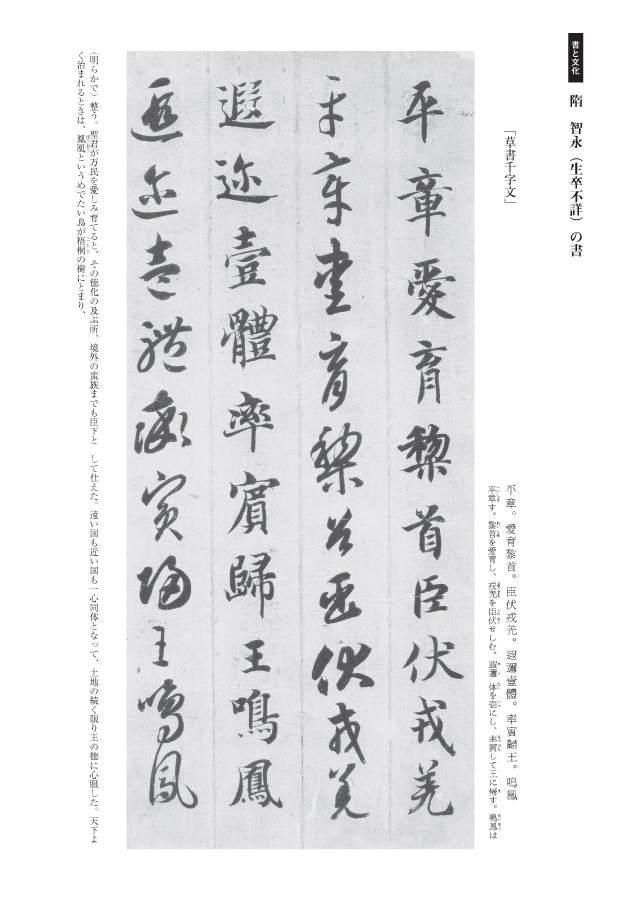 書と文化
隋 智永(生卒不詳)の書
「草書千字文」
平章。愛育黎首。臣伏戎羌。遐邇壹體。率賓歸王。鳴鳳
平章す。黎首を愛育し、戎羌を臣伏せしむ。遐邇 体を壱にし、率賓して王に帰す。鳴鳳は
平章愛育黎首臣伏戎羌
平章愛育黎首臣伏戎羌
遐迩壹體率賓歸王鳴鳳
遐迩壹體率賓歸王鳴鳳
(明らかで)整う。聖君が万民を愛しみ育てると、その徳化の及ぶ所、境外の蛮族までも臣下と して仕えた。遠い国も近い国も一心同体となって、土地の続く限り王の徳に心服した。天下よ
く治まれるときは、鳳凰というめでたい鳥が梧桐の樹にとまり、